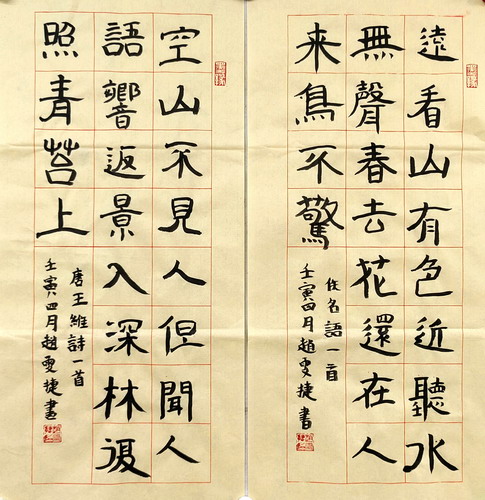 遠看山有色近聽水
無聲春去花還在人
来鳥不驚
佚名語一首
壬寅四月趙雯捷書
空山不見人但聞人
語響返景入深林復
照青苔上
唐王維詩一首
壬寅四月趙雯捷書